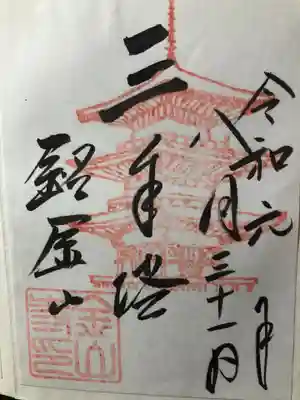 令和元年
八月三十一日
三重塔
金山